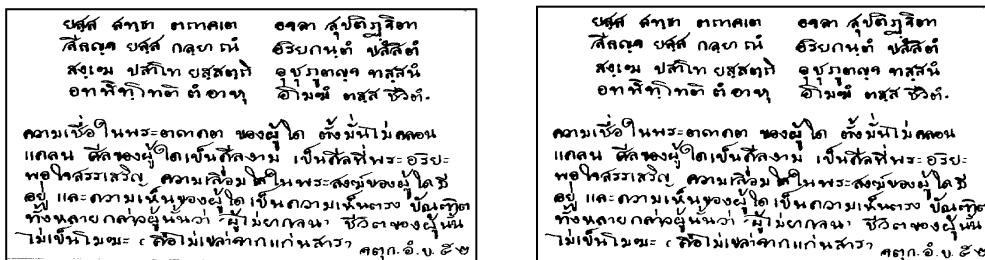 ยสฺส สทฺธา ตถาคเต อจลา สุปติฏฺฐิตา
สีลญฺจ ยสฺส กลฺยาณํ อริยกนฺตํ ปสํสิตํ
สงฺเฆ ปสาโท ยสฺสตฺถิ อุชุภูตญฺจ ทสฺสนํ
อทฬิทฺโทติ ตํ อาหุ อโมฆํ ตสฺส ชีวิตํ.
ความเชื่อในพระตถาคต ของผู้ใด ตั้งมั่นไม่คลอน
แคลน ศีลของผู้ใดเป็นศีลงาม เป็นศีลที่พระอริยะ
พอใจสรรเสริญ ความเลื่อมใสในพระสงฆ์ของผู้ใดมี
อยู่ และความเห็นของผู้ใดเป็นความเห็นตรง บัณฑิต
ทั้งหลายกล่าวผู้นั้นว่า "ผู้ไม่ยากจน" ชีวิตของผู้นั้น
ไม่เป็นโมฆะ (คือไม่เปล่าจากแก่นสาร)
จตุก.อํ.
ยสฺส สทฺธา ตถาคเต อจลา สุปติฏฺฐิตา
สีลญฺจ ยสฺส กลฺยาณํ อริยกนฺตํ ปสํสิตํ
สงฺเฆ ปสาโท ยสฺสตฺถิ อุชุภูตญฺจ ทสฺสนํ
อทฬิทฺโทติ ตํ อาหุ อโมฆํ ตสฺส ชีวิตํ.
ความเชื่อในพระตถาคต ของผู้ใด ตั้งมั่นไม่คลอน
แคลน ศีลของผู้ใดเป็นศีลงาม เป็นศีลที่พระอริยะ
พอใจสรรเสริญ ความเลื่อมใสในพระสงฆ์ของผู้ใดมี
อยู่ และความเห็นของผู้ใดเป็นความเห็นตรง บัณฑิต
ทั้งหลายกล่าวผู้นั้นว่า "ผู้ไม่ยากจน" ชีวิตของผู้นั้น
ไม่เป็นโมฆะ (คือไม่เปล่าจากแก่นสาร)
จตุก.อํ.